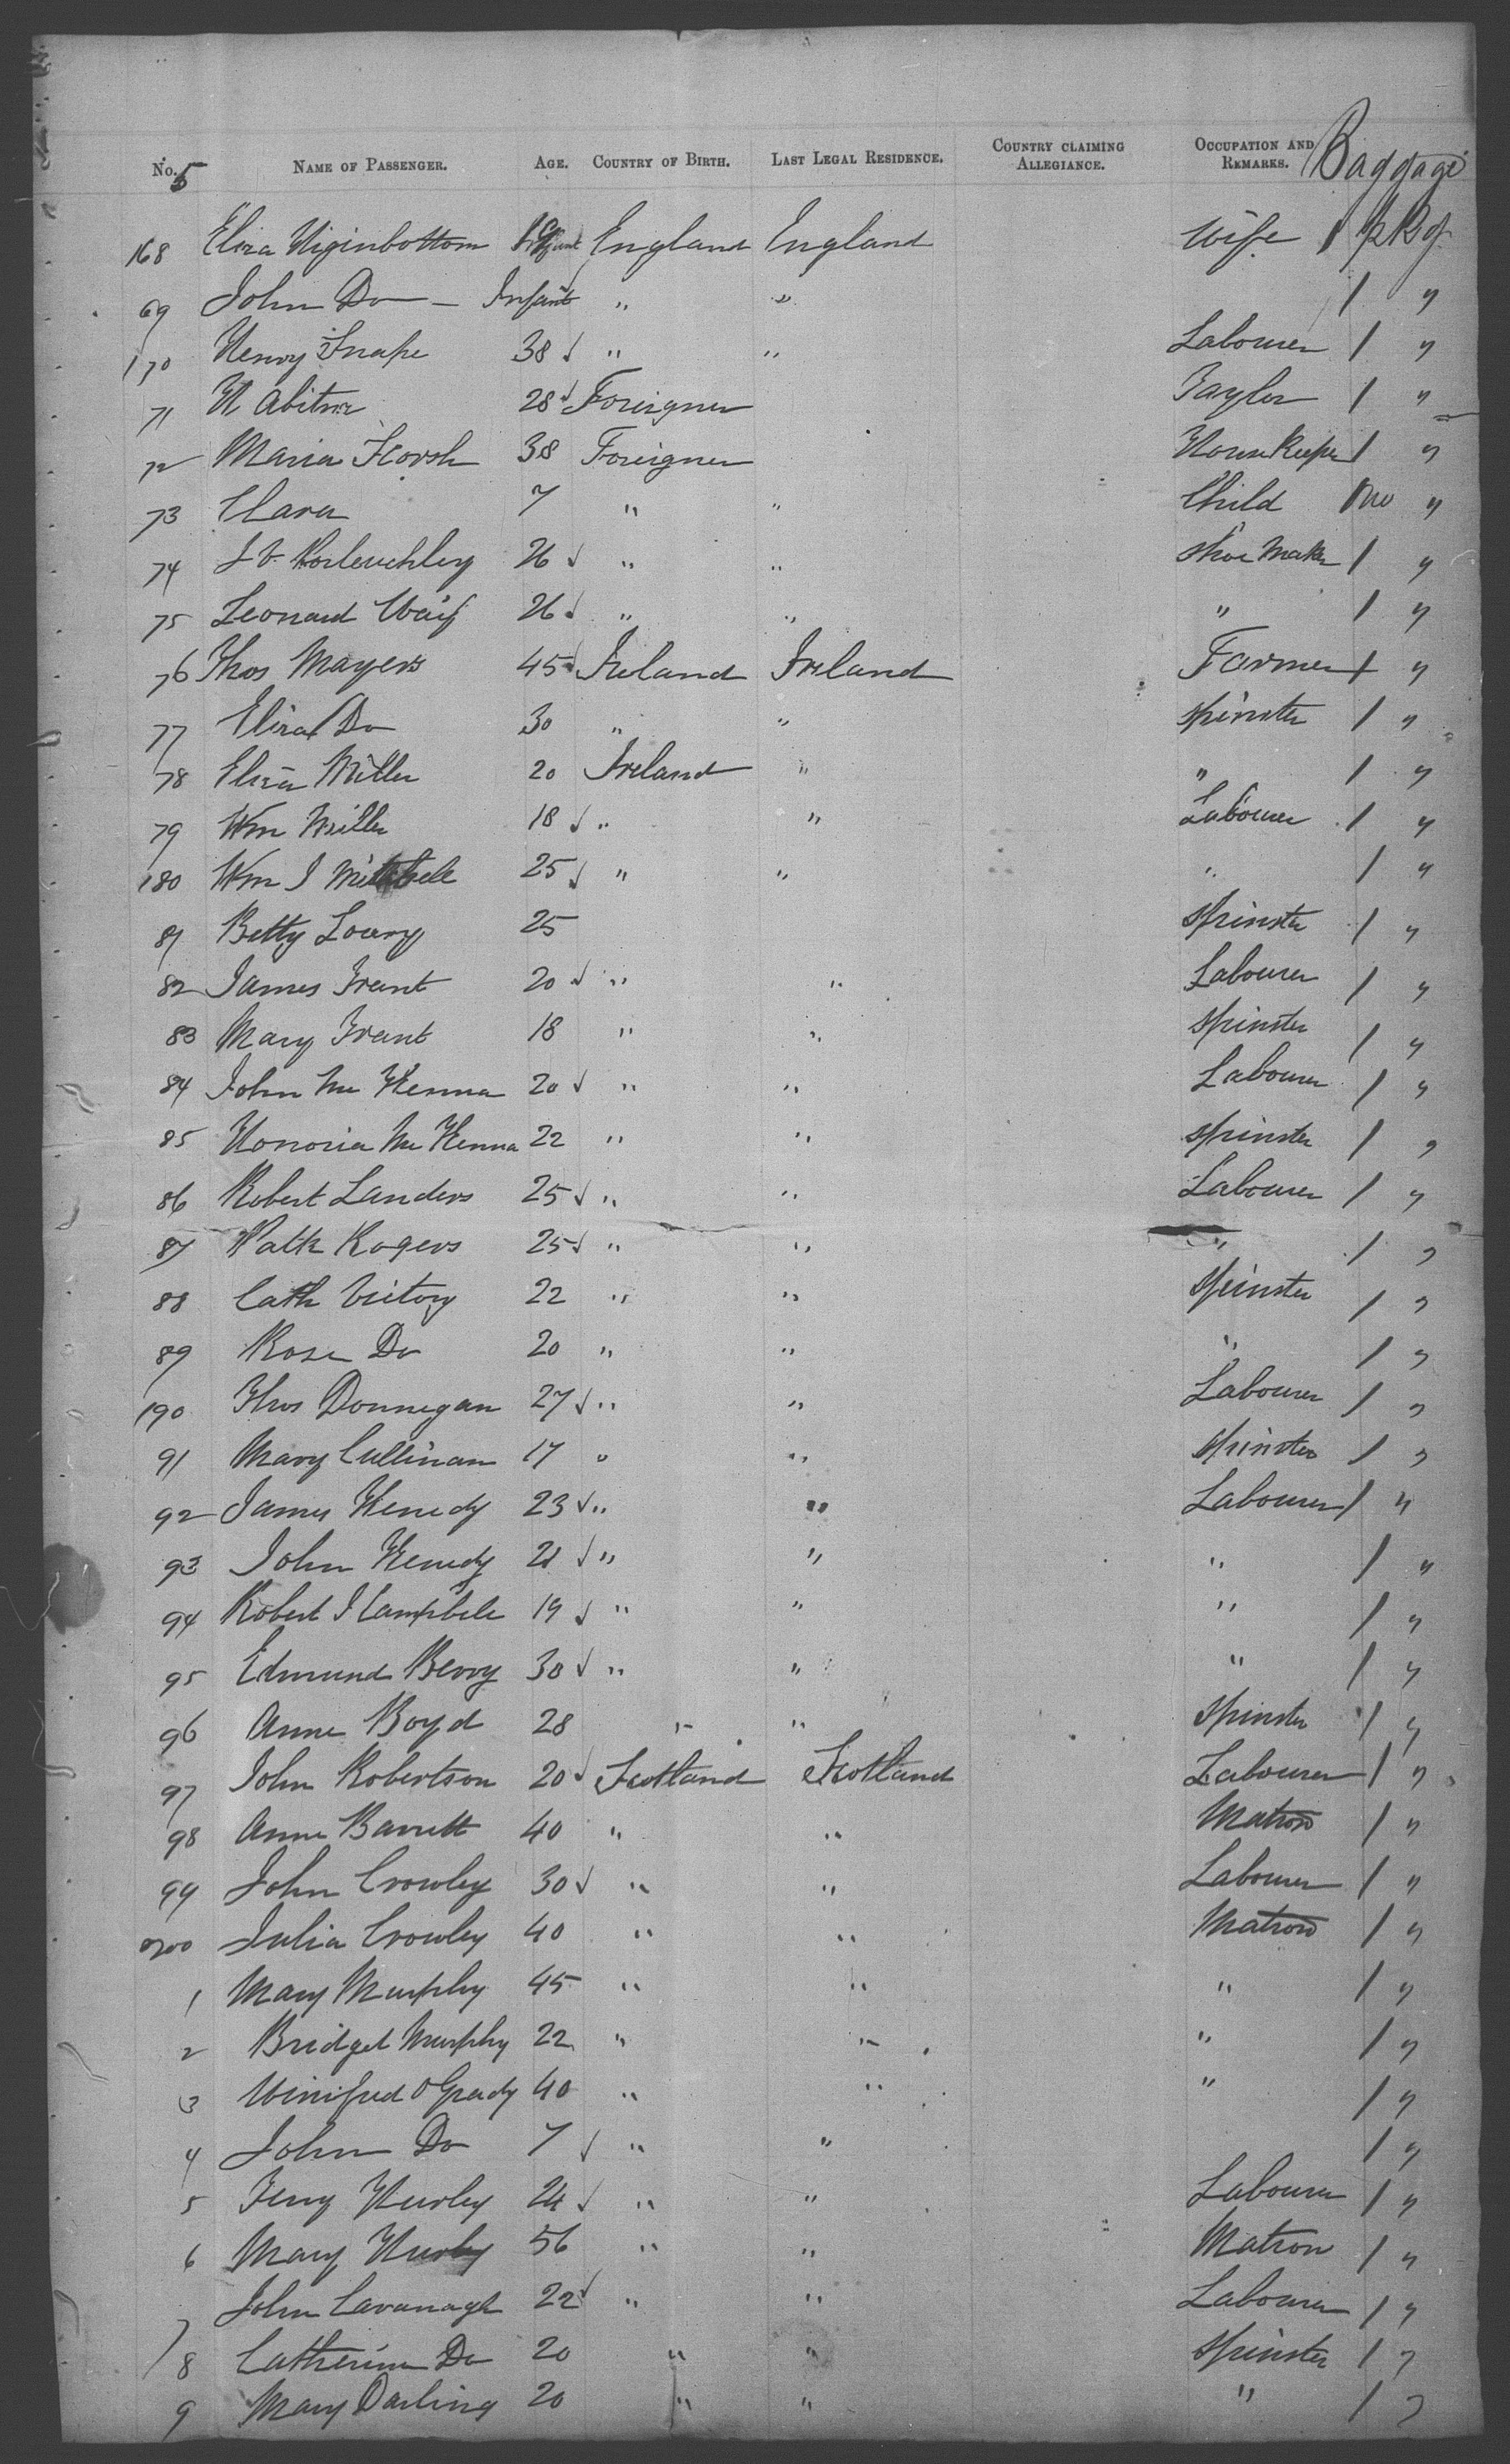 No. 5 NAME OF PASSENGER. AGE. COUNTRY OF BIRTH. LAST LEGAL RESIDENCE. COUNTRY CLAIMING ALLEGIANCE. OCCUPATION AND REMARKS. Baggage
168 Eliza Higinbottom England England Wife 1 pkg
69 John Do Infant " " 1 "
170 Henry Snape 38 " " Labourer 1 "
71 H Abitner 28 Foreigner Taylor 1 "
72 Maria Horsh 38 Foreigner HouseKeeper 1 "
73 Clara 7 " " Child no "
74 26 " " Shoe Maker 1 "
75 Leonard 26 " " " 1 "
76 Thos Mayers 45 Ireland Ireland Farmer 1 "
77 Eliza Do 30 " " Spinster 1 "
78 Eliza Miller 20 Ireland " " 1 "
79 Wm Miller 18 " " Labourer 1 "
180 Wm J Mitchell 25 " " " 1 "
81 Betty Lowry 25 Spinster 1 "
82 James Grant 20 " " Labourer 1 "
83 Mary Grant 18 " " Spinster 1 "
84 John Mc Kenna 20 " " Labourer 1 "
85 Honoria Mc Kenna 22 " " Spinster 1 "
86 Robert Landers 25 " " Labourer 1 "
87 Patk Rogers 25 " " " 1 "
88 Cath Victory 22 " " Spinster 1 "
89 Rose Do 20 " " " 1 "
190 Thos Donnegan 27 " " Labourer 1 "
91 Mary Cullinan 17 " " Spinster 1 "
92 James Kenedy 23 " " Labourer 1 "
93 John Kenedy 21 " " " 1 "
94 Robert J Campbell 19 " " " 1 "
95 Edmund Berry 30 " " " 1 "
96 Anne Boyd 28 " " Spinster 1 "
97 John Robertson 20 Scotland Scotland Labourer 1 "
98 Anne Barrett 40 " " Matron 1 "
99 John Crowley 30 " " Labourer 1 "
200 Julia Crowley 40 " " Matron 1 "
1 Mary Murphy 45 " " " 1 "
2 Bridget Murphy 22 " " " 1 "
3 Winifred O Grady 40 " " " 1 "
4 John Do 7 " " 1 "
5 Jerry Hurley 24 " " Labourer 1 "
6 Mary Hurley 56 " " Matron 1 "
7 John Cavanagh 22 " " Labourer 1 "
8 Catherine Do 20 " " Spinster 1 "
9 Mary Darling 20 " " " 1 "